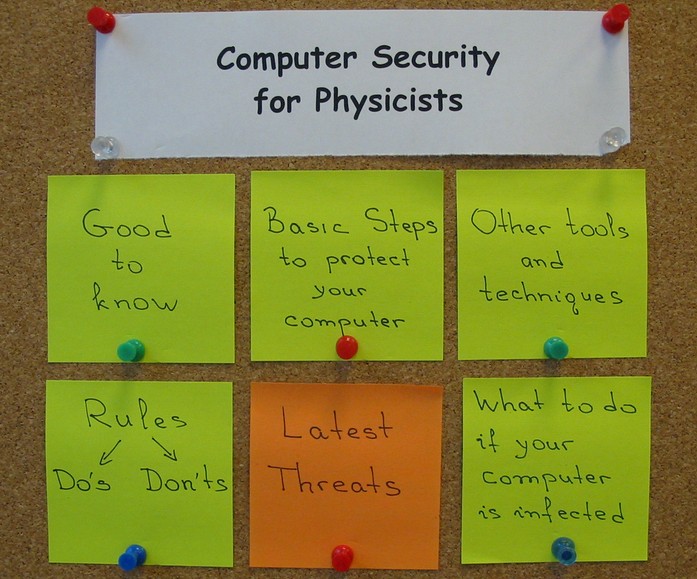 Computer Security
for Physicists
Good
to
know
Basic Steps
to protect
your
computer
Other tools
and
techniques
Rules
Do's Don'ts
Latest
Threats
What to do
if your
computer
is infected